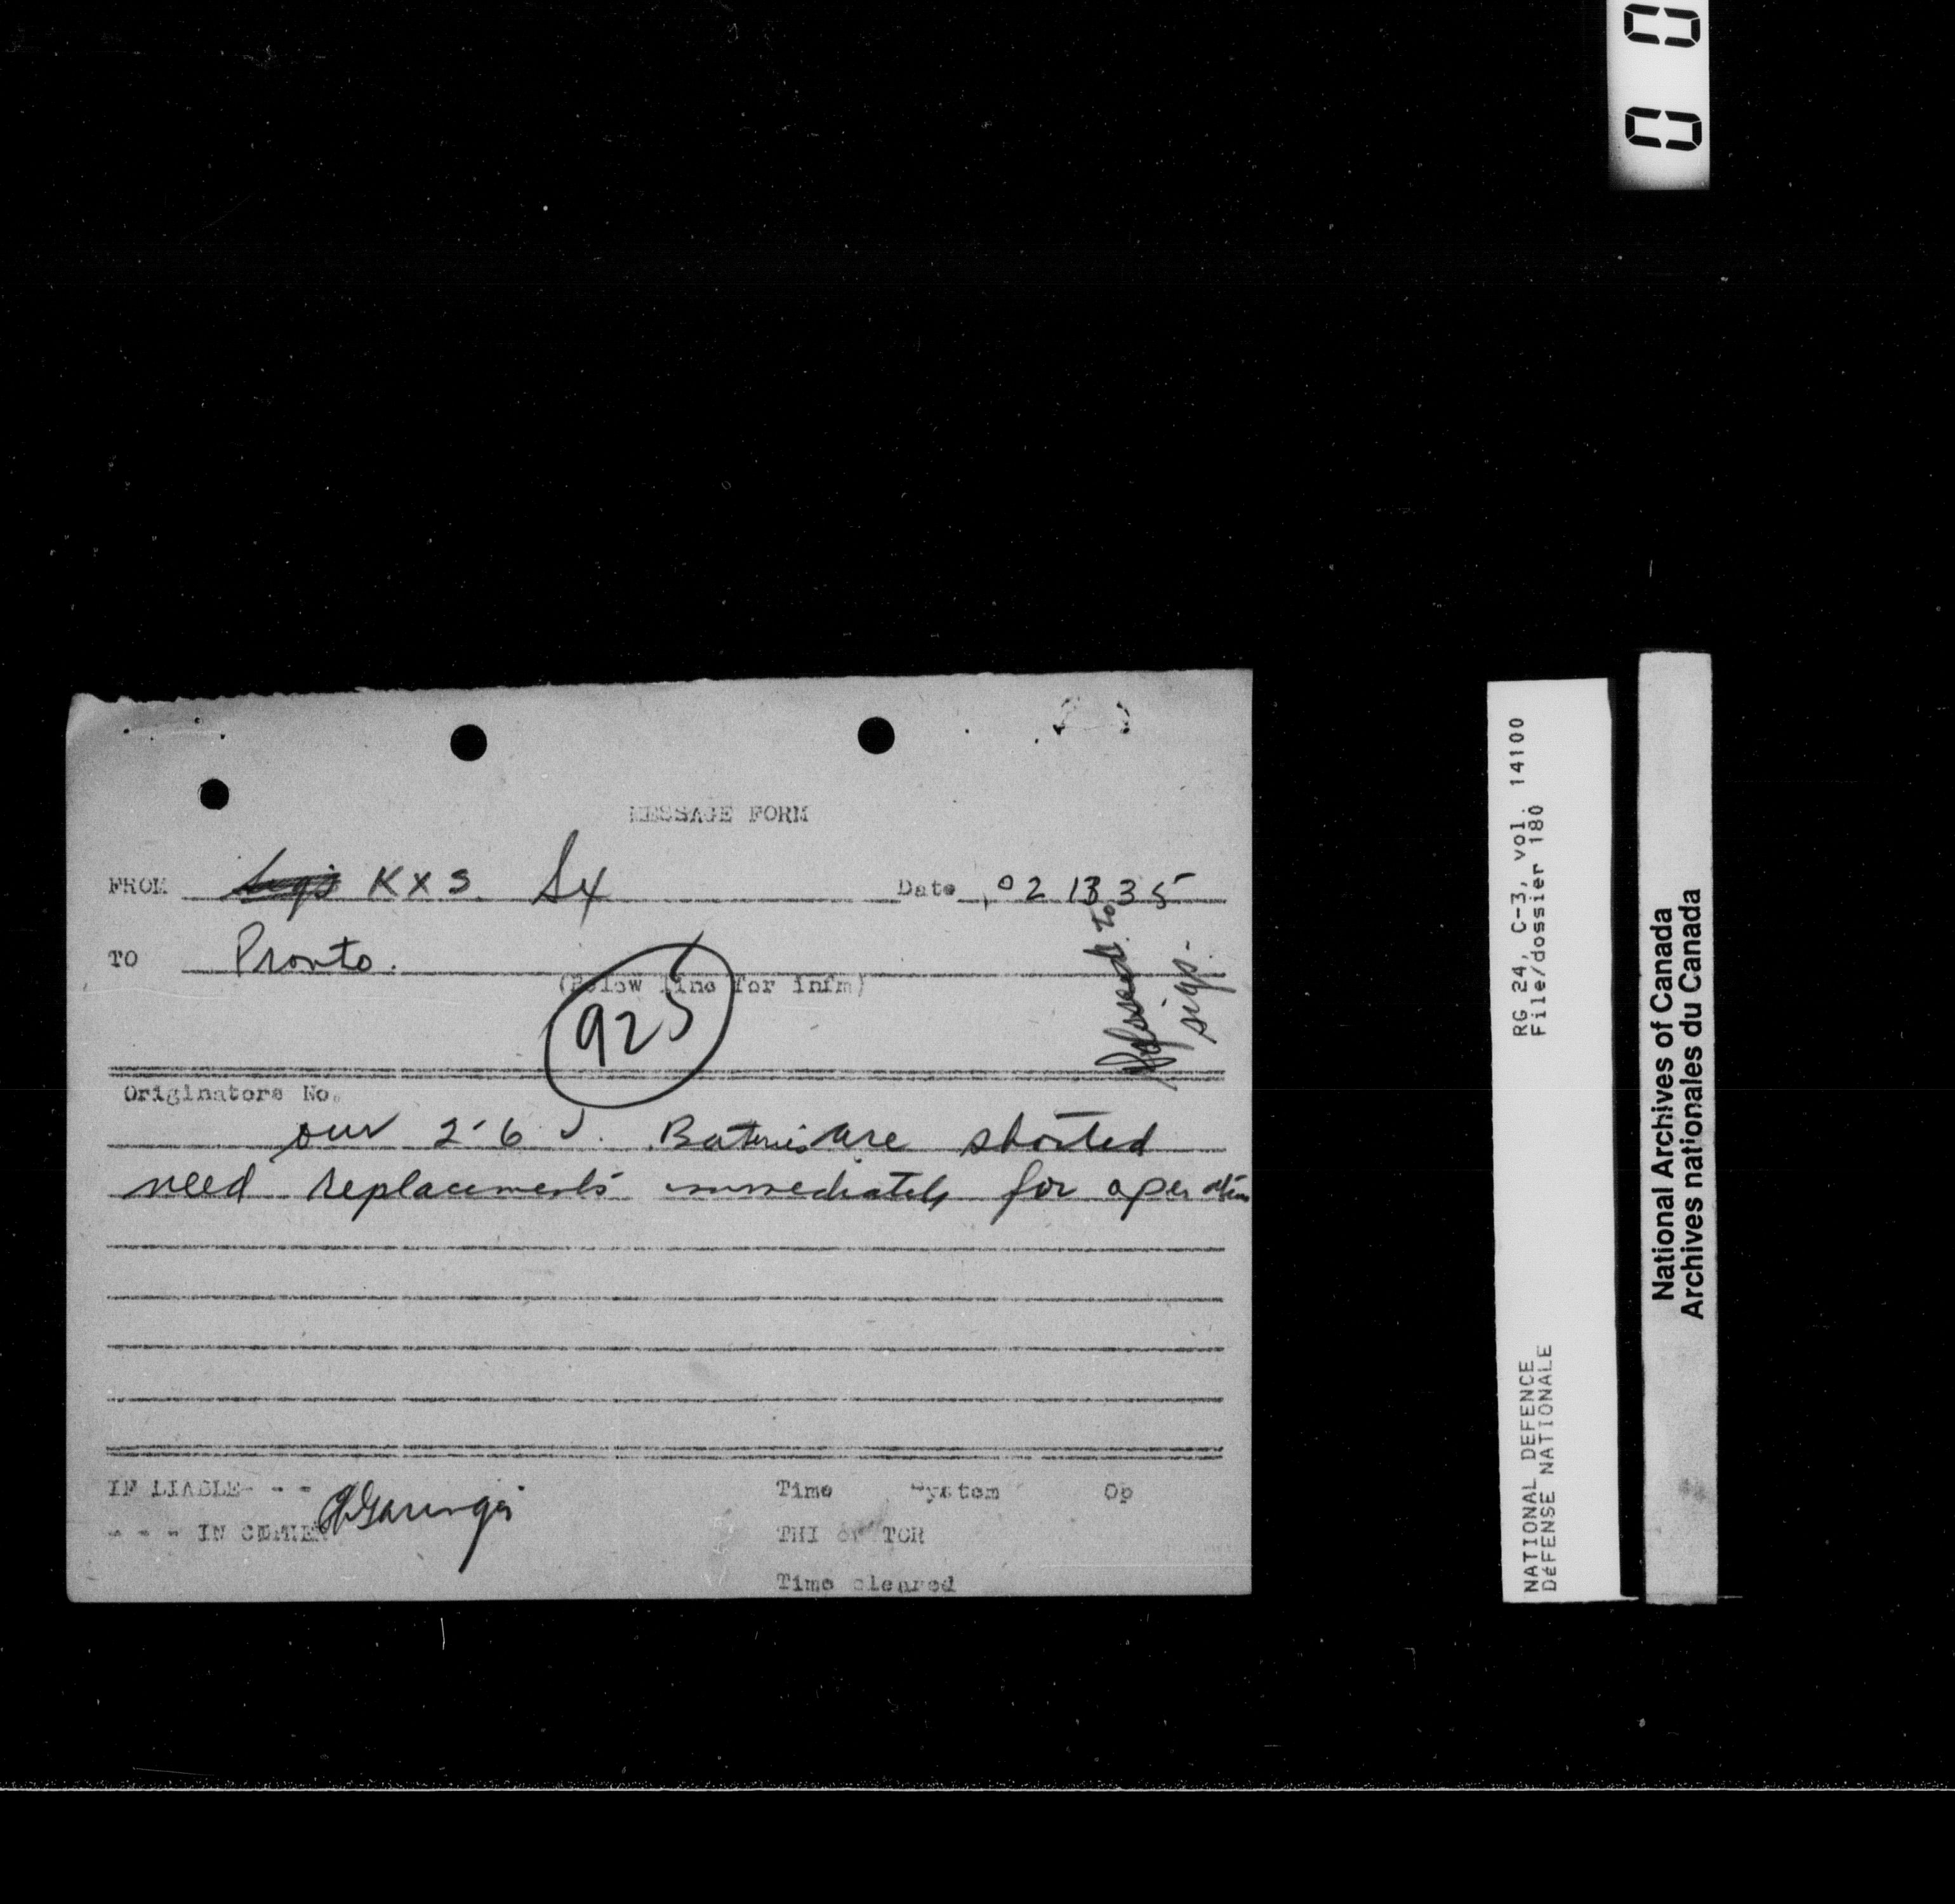 0 0
MESSAGE FORM
FROM Sigs KXS. Sx Date 021335
TO Pronto.
(Below line for infm)
925
to sigs.
Originators No.
our 2-6 V. Bateries are shorted
need replacements immediately for operation
IF LIABLE - - -
- - - IN CIPHER
Time System Op
THI or TOR
Time cleared
RG 24, C-3, vol. 14100
File/dossier 180
NATIONAL DEFENCE
DéFENSE NATIONALE
National Archives of Canada
Archives nationales du Canada